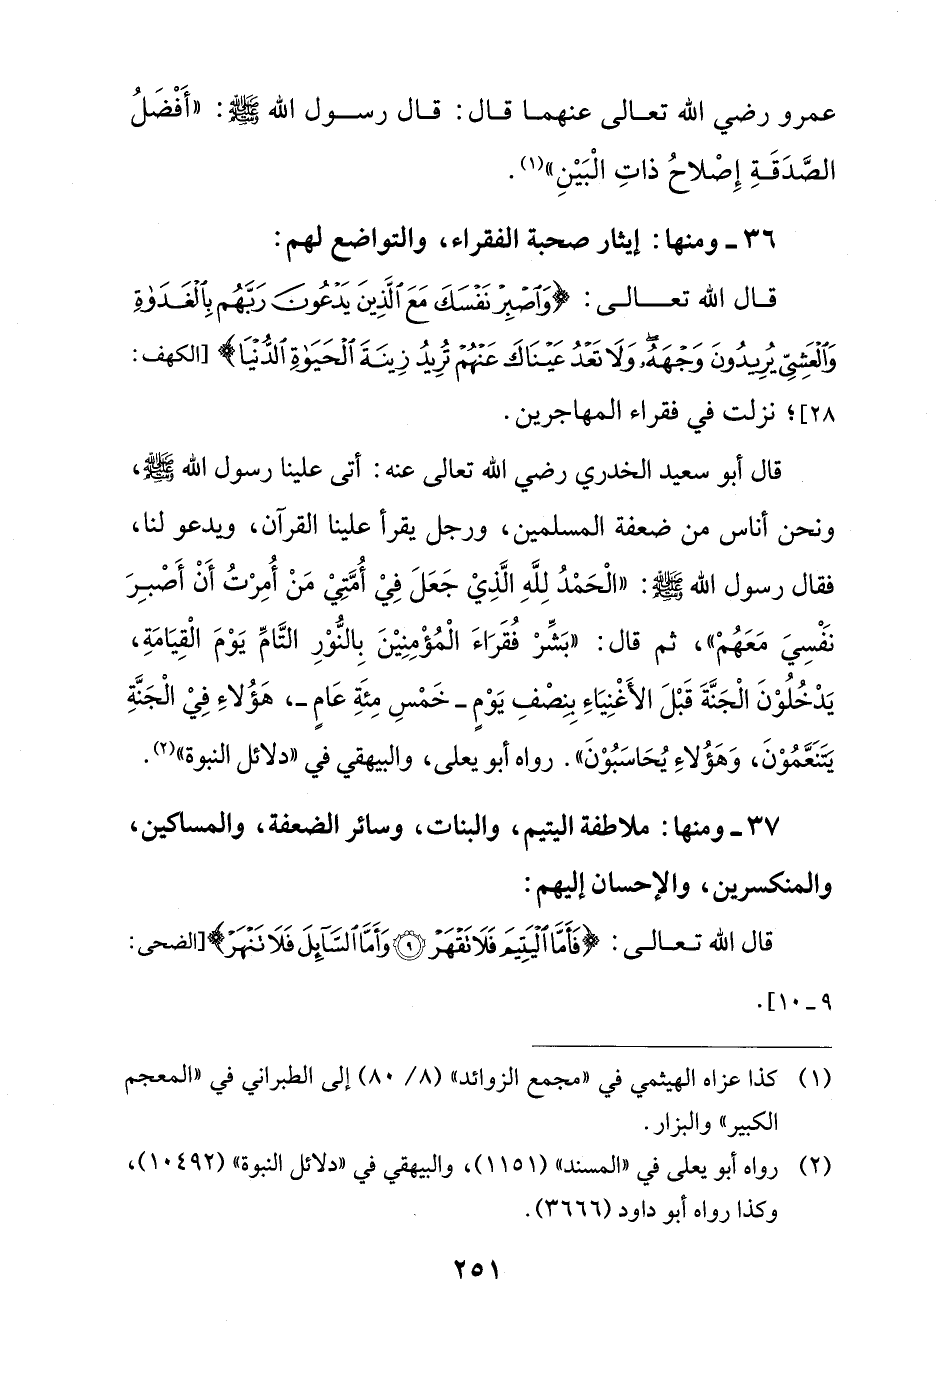 عمرو رضي الله تعالى عنهما قال: قال رسول الله ﷺ: «أَفْضَلُ
الصَّدَقَةِ إِصْلاحُ ذاتِ الْبَيْنِ»(١).
٣٦ ـ ومنها: إيثار صحبة الفقراء، والتواضع لهم:
قال الله تعالى: ﴿وَٱصْبِرْ نَفْسَكَ مَعَ ٱلَّذِينَ يَدْعُونَ رَبَّهُم بِٱلْغَدَوٰةِ
وَٱلْعَشِيِّ يُرِيدُونَ وَجْهَهُۥ ۖ وَلَا تَعْدُ عَيْنَاكَ عَنْهُمْ تُرِيدُ زِينَةَ ٱلْحَيَوٰةِ ٱلدُّنْيَا﴾ [الكهف:
٢٨]؛ نزلت في فقراء المهاجرين.
قال أبو سعيد الخدري رضي الله تعالى عنه: أتى علينا رسول الله ﷺ،
ونحن أناس من ضعفة المسلمين، ورجل يقرأ علينا القرآن، ويدعو لنا،
فقال رسول الله ﷺ: «الْحَمْدُ لِلَّهِ الَّذِيْ جَعَلَ فِيْ أُمَّتِيْ مَنْ أُمِرْتُ أَنْ أَصْبِرَ
نَفْسِيَ مَعَهُمْ»، ثم قال: «بَشِّرْ فُقَرَاءَ الْمُؤْمِنِيْنَ بِالنُّوْرِ التَّامِّ يَوْمَ الْقِيَامَةِ،
يَدْخُلُوْنَ الْجَنَّةَ قَبْلَ الأَغْنِيَاءِ بِنِصْفِ يَوْمٍ ـ خَمْسِ مِئَةِ عَامٍ ـ، هَؤُلاءِ فِيْ الْجَنَّةِ
يَتَنَعَّمُوْنَ، وَهَؤُلاءِ يُحَاسَبُوْنَ». رواه أبو يعلى، والبيهقي في «دلائل النبوة»(٢).
٣٧ ـ ومنها: ملاطفة اليتيم، والبنات، وسائر الضعفة، والمساكين،
والمنكسرين، والإحسان إليهم:
قال الله تعالى: ﴿فَأَمَّا ٱلْيَتِيمَ فَلَا تَقْهَرْ ۝٩ وَأَمَّا ٱلسَّآئِلَ فَلَا تَنْهَرْ﴾ [الضحى:
٩ ـ ١٠].
(١) كذا عزاه الهيثمي في «مجمع الزوائد» (٨/ ٨٠) إلى الطبراني في «المعجم
الكبير» والبزار.
(٢) رواه أبو يعلى في «المسند» (١١٥١)، والبيهقي في «دلائل النبوة» (١٠٤٩٢)،
وكذا رواه أبو داود (٣٦٦٦).
٢٥١